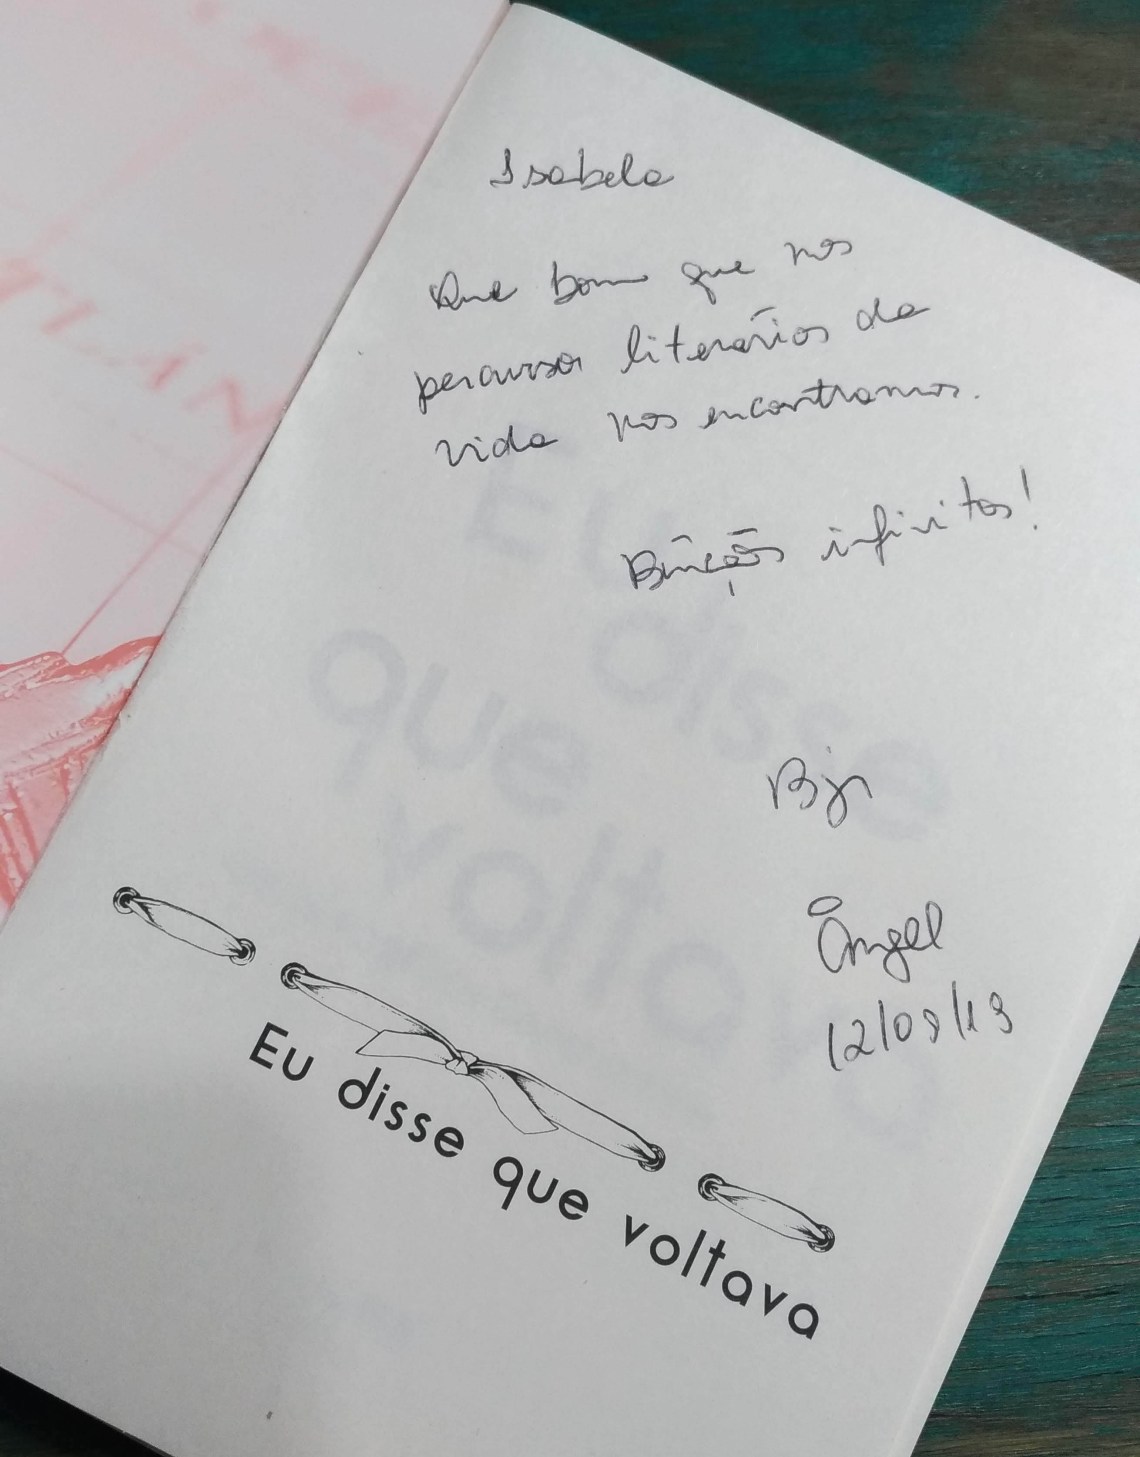 Isabela
Que bom que nos
percursos literários da
vida nos encontramos.
Bênçãos infinitas!
Bjs
Ângel
12/09/19
Eu disse que voltava